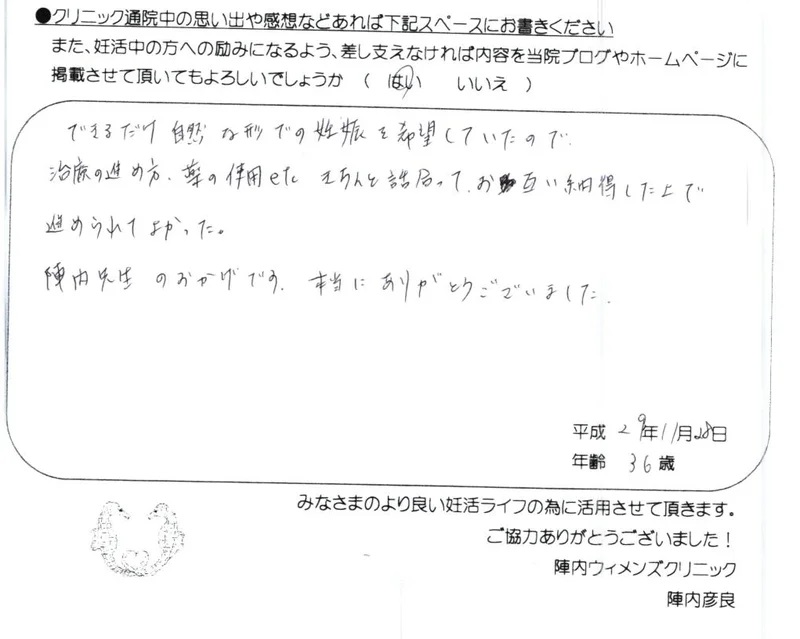 ●クリニック通院中の思い出や感想などあれば下記スペースにお書きください
また、妊活中の方への励みになるよう、差し支えなければ内容を当院ブログやホームページに
掲載させて頂いてもよろしいでしょうか ( はい いいえ )
できるだけ 自然 な形での妊娠を希望していたので、
治療の進め方、薬の使用etc きちんと話合って、お互い納得した上で
進められてよかった。
陣内先生 のおかげです。 本当に ありがとうございました。
平成 29年11月28日
年齢 36歳
みなさまのより良い妊活ライフの為に活用させて頂きます。
ご協力ありがとうございました!
陣内ウィメンズクリニック
陣内彦良